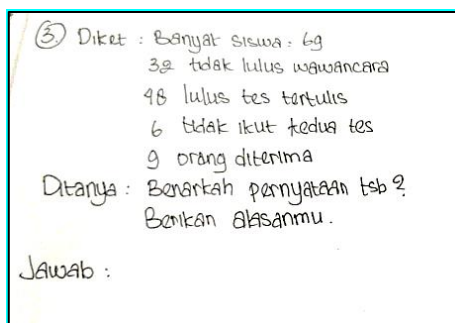 ③ Diket : Banyak siswa : 69
32 tidak lulus wawancara
48 lulus tes tertulis
6 tidak ikut kedua tes
9 orang diterima
Ditanya : Benarkah pernyataan tsb ?
Berikan alasanmu.
Jawab :